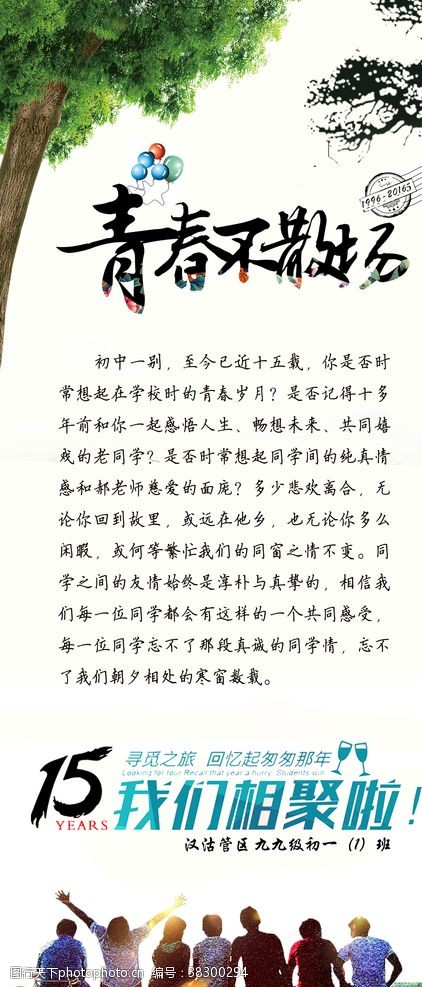 1996-20165
青春不散场
初中一别，至今已近十五载，你是否时
常想起在学校时的青春岁月？是否记得十多
年前和你一起感悟人生、畅想未来、共同嬉
戏的老同学？是否时常想起同学间的纯真情
感和郝老师慈爱的面庞？多少悲欢离合，无
论你回到故里，或远在他乡，也无论你多么
闲暇，或何等繁忙我们的同窗之情不变。同
学之间的友情始终是淳朴与真挚的，相信我
们每一位同学都会有这样的一个共同感受，
每一位同学忘不了那段真诚的同学情，忘不
了我们朝夕相处的寒窗数载。
寻觅之旅 回忆起匆匆那年
Looking for four Recall that year a hurry, Students will
15
YEARS
我们相聚啦！
汉沽管区九九级初一（1）班
图行天下photophoto.cn 编号：38300294